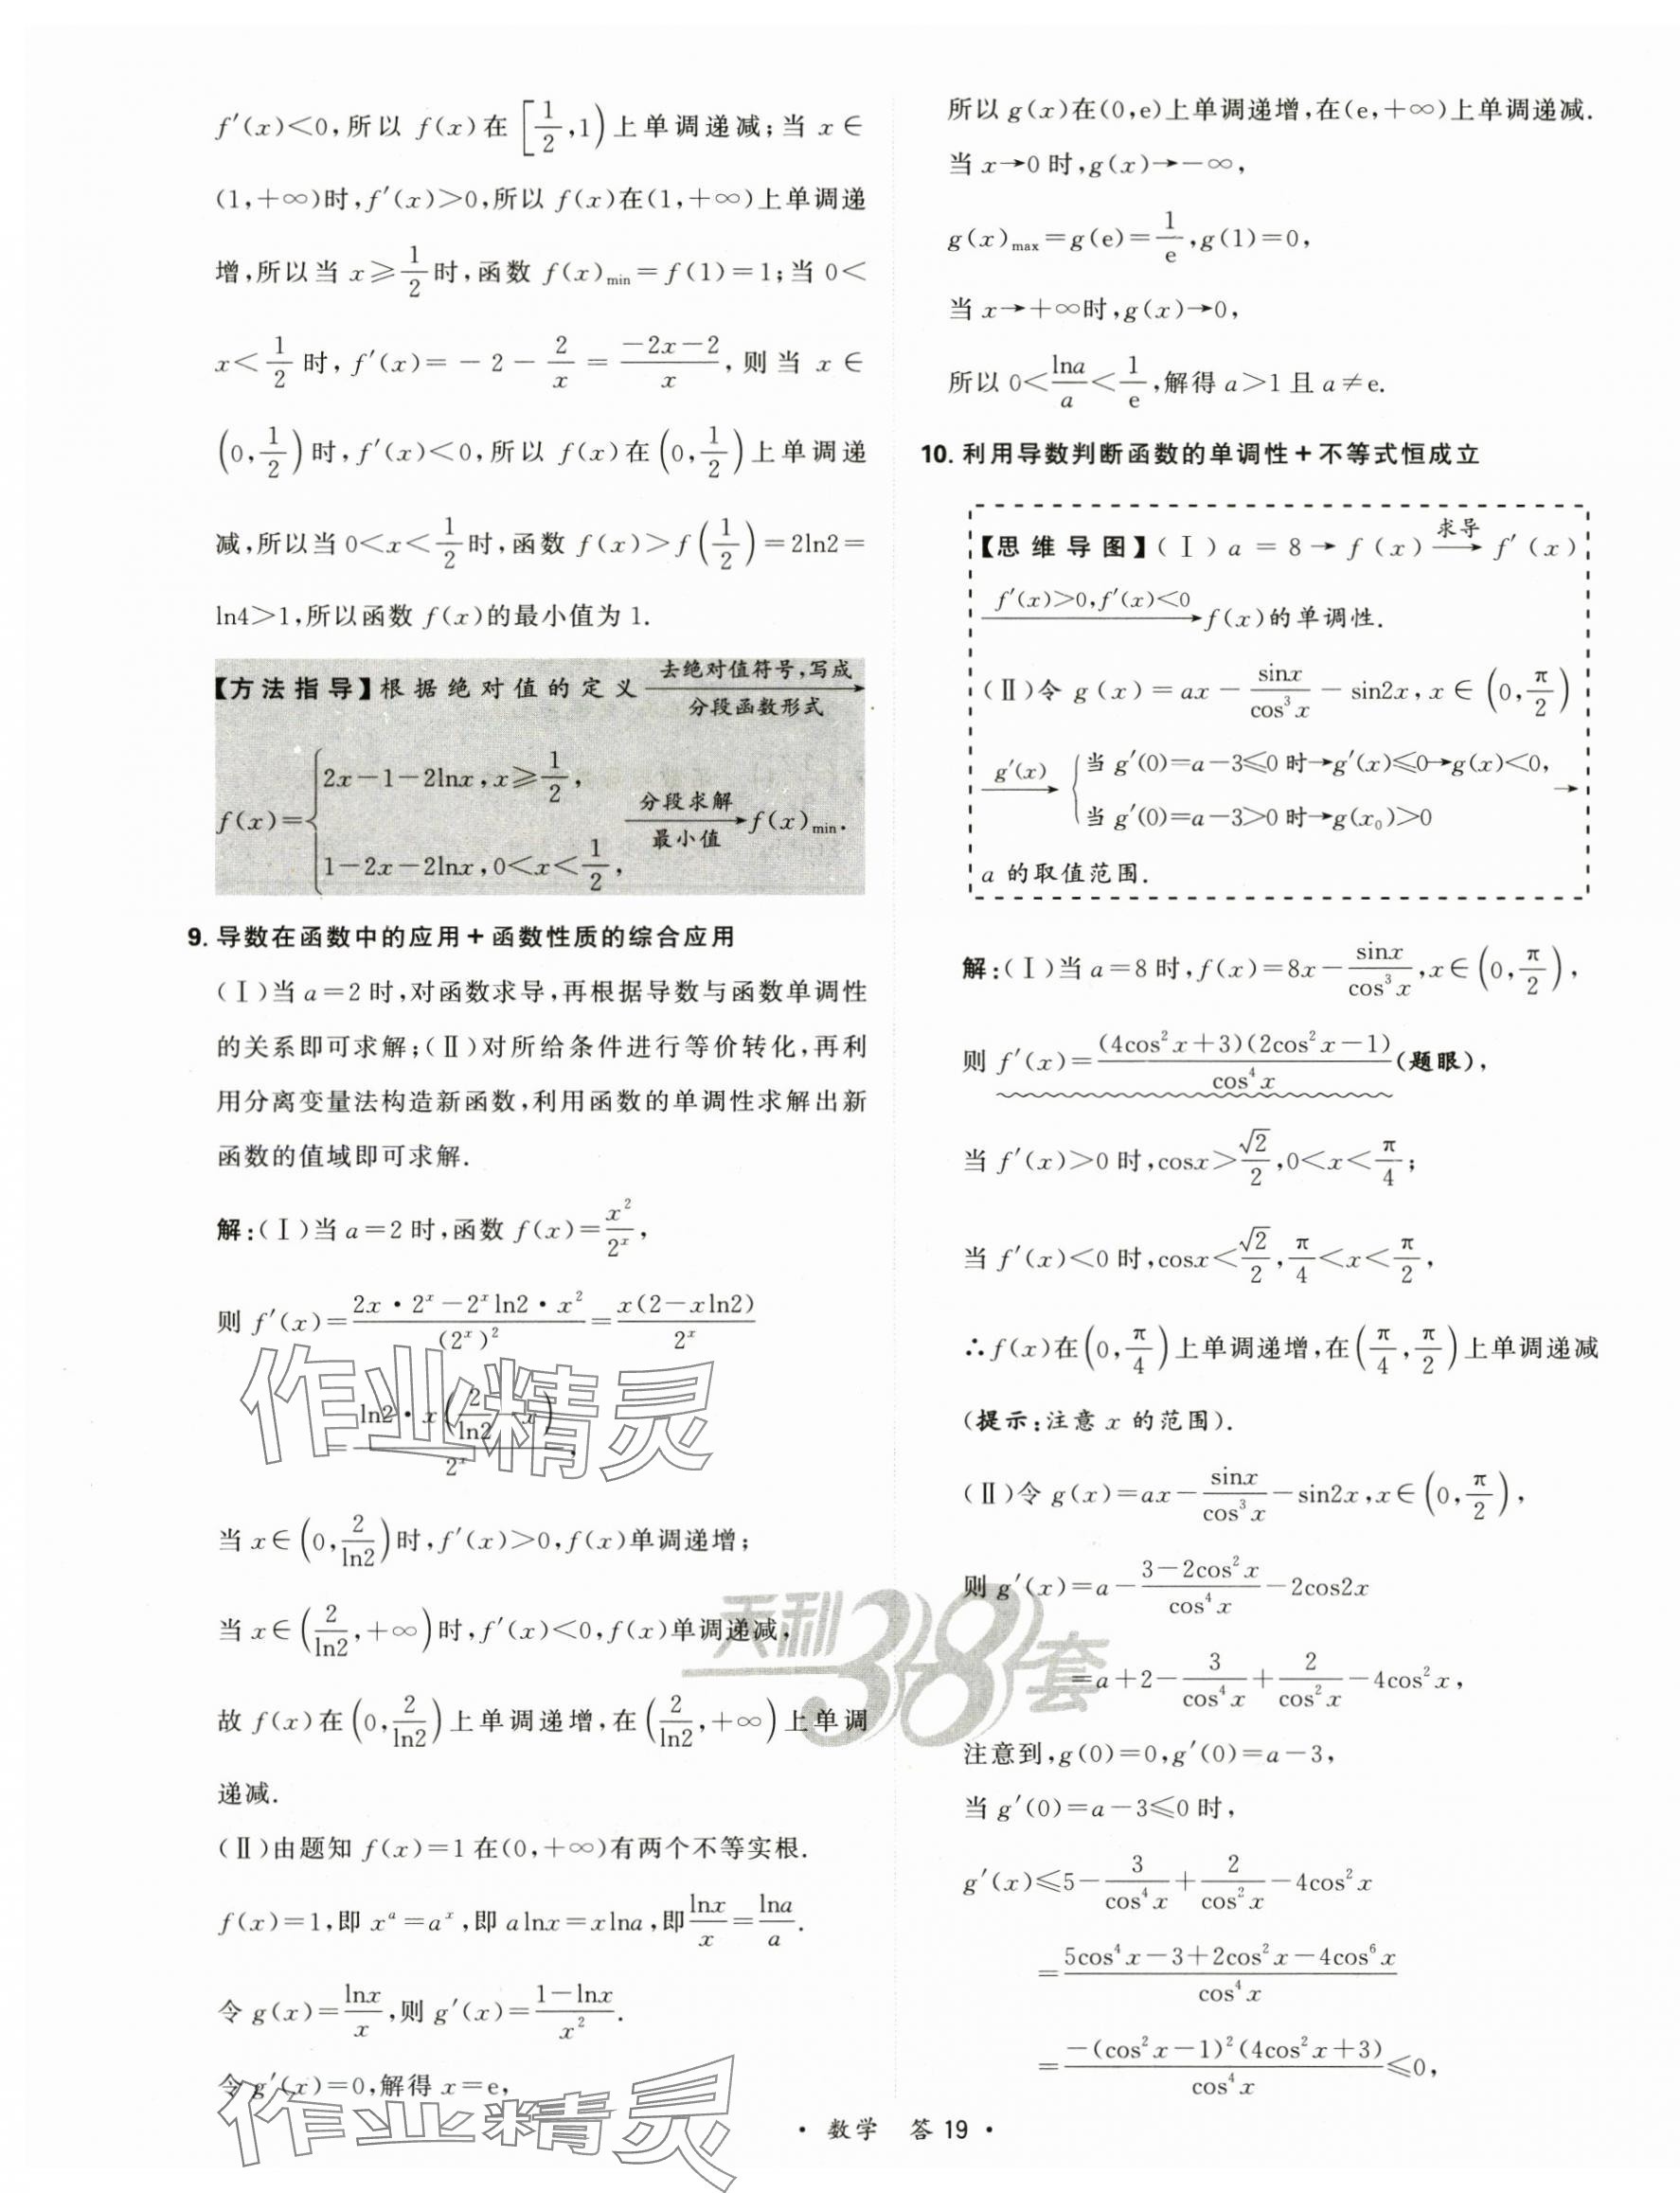 f′(x)<0,所以 f(x)在[1/2,1)上单调递减;当 x∈
(1,+∞)时,f′(x)>0,所以 f(x)在(1,+∞)上单调递
增,所以当 x≥1/2时,函数 f(x)min=f(1)=1;当 0<
x<1/2时,f′(x)=-2-2/x=(-2x-2)/x,则当 x∈
(0,1/2)时,f′(x)<0,所以 f(x)在(0,1/2)上单调递
减,所以当 0<x<1/2时,函数 f(x)>f(1/2)=2ln2=
ln4>1,所以函数 f(x)的最小值为 1.
【方法指导】根据绝对值的定义 去绝对值符号,写成→分段函数形式
f(x)={2x-1-2lnx,x≥1/2,
1-2x-2lnx,0<x<1/2, 分段求解→最小值 f(x)min.
9. 导数在函数中的应用+函数性质的综合应用
(Ⅰ)当 a=2 时,对函数求导,再根据导数与函数单调性
的关系即可求解;(Ⅱ)对所给条件进行等价转化,再利
用分离变量法构造新函数,利用函数的单调性求解出新
函数的值域即可求解.
解:(Ⅰ)当 a=2 时,函数 f(x)=x²/2ˣ,
则 f′(x)=(2x·2ˣ-2ˣln2·x²)/(2ˣ)²=x(2-xln2)/2ˣ
=ln2·x(2/ln2-x)/2ˣ,
当 x∈(0,2/ln2)时,f′(x)>0,f(x)单调递增;
当 x∈(2/ln2,+∞)时,f′(x)<0,f(x)单调递减,
故 f(x)在(0,2/ln2)上单调递增,在(2/ln2,+∞)上单调
递减.
(Ⅱ)由题知 f(x)=1 在(0,+∞)有两个不等实根.
f(x)=1,即 xᵃ=aˣ,即 alnx=xlna,即lnx/x=lna/a.
令 g(x)=lnx/x,则 g′(x)=(1-lnx)/x².
令 g′(x)=0,解得 x=e,
所以 g(x)在(0,e)上单调递增,在(e,+∞)上单调递减.
当 x→0 时,g(x)→-∞,
g(x)max=g(e)=1/e,g(1)=0,
当 x→+∞时,g(x)→0,
所以 0<lna/a<1/e,解得 a>1 且 a≠e.
10. 利用导数判断函数的单调性+不等式恒成立
【思维导图】(Ⅰ)a=8→f(x) 求导→ f′(x)
f′(x)>0,f′(x)<0→f(x)的单调性.
(Ⅱ)令 g(x)=ax-sinx/cos³x-sin2x,x∈(0,π/2)
g′(x)→{当 g′(0)=a-3≤0 时→g′(x)≤0→g(x)<0,
当 g′(0)=a-3>0 时→g(x₀)>0 →
a 的取值范围.
解:(Ⅰ)当 a=8 时,f(x)=8x-sinx/cos³x,x∈(0,π/2),
则 f′(x)=(4cos²x+3)(2cos²x-1)/cos⁴x(题眼),
当 f′(x)>0 时,cosx>√2/2,0<x<π/4;
当 f′(x)<0 时,cosx<√2/2,π/4<x<π/2,
∴f(x)在(0,π/4)上单调递增,在(π/4,π/2)上单调递减
(提示:注意 x 的范围).
(Ⅱ)令 g(x)=ax-sinx/cos³x-sin2x,x∈(0,π/2),
则 g′(x)=a-(3-2cos²x)/cos⁴x-2cos2x
=a+2-3/cos⁴x+2/cos²x-4cos²x,
注意到,g(0)=0,g′(0)=a-3,
当 g′(0)=a-3≤0 时,
g′(x)≤5-3/cos⁴x+2/cos²x-4cos²x
=(5cos⁴x-3+2cos²x-4cos⁶x)/cos⁴x
=-(cos²x-1)²(4cos²x+3)/cos⁴x≤0,
·数学 答 19·
作业精灵
天利38套
作业精灵